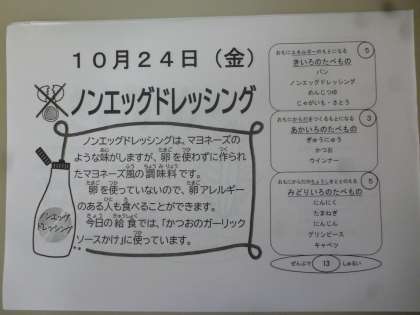 10月24日（金）
ノンエッグドレッシング
ノンエッグドレッシングは、マヨネーズの
ような味がしますが、卵を使わずに作られ
たマヨネーズ風の調味料です。
卵を使っていないので、卵アレルギー
のある人も食べることができます。
今日の給食では、「かつおのガーリック
ソースかけ」に使っています。
ノンエッグ
ドレッシング
おもにエネルギーのもとになる
5
きいろのたべもの
パン
ノンエッグドレッシング
めんじつゆ
じゃがいも・さとう
おもにからだをつくるもとになる
3
あかいろのたべもの
ぎゅうにゅう
かつお
ウインナー
おもにからだのちょうしをととのえる
5
みどりいろのたべもの
にんにく
たまねぎ
にんじん
グリンピース
キャベツ
ぜんぶで 13 しゅるい